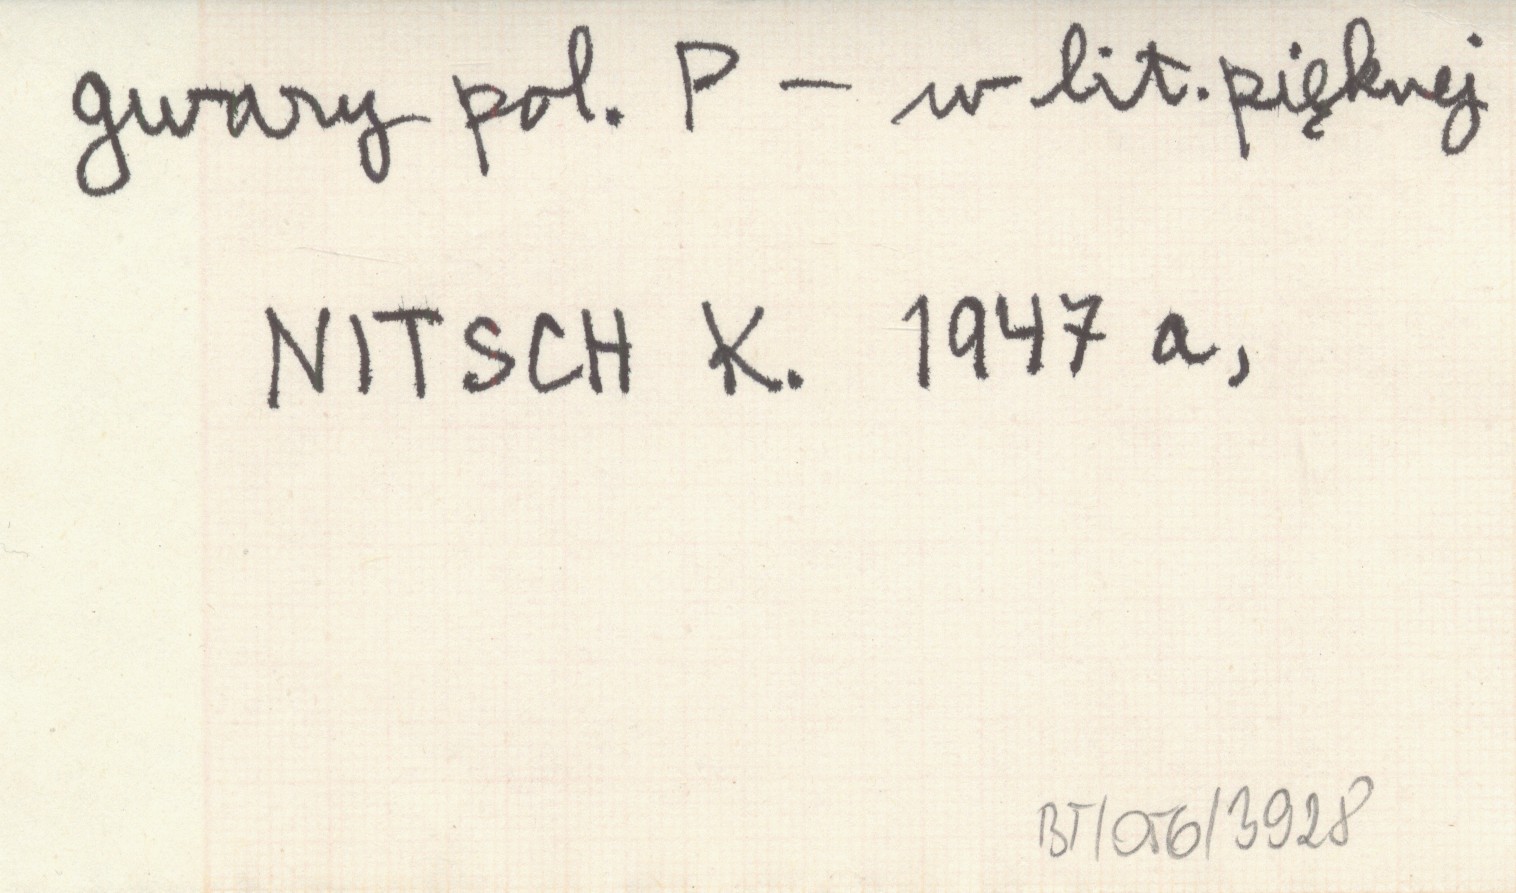 gwary pol. P — w lit. pięknej
NITSCH K. 1947 a,
BT/OTO/3928